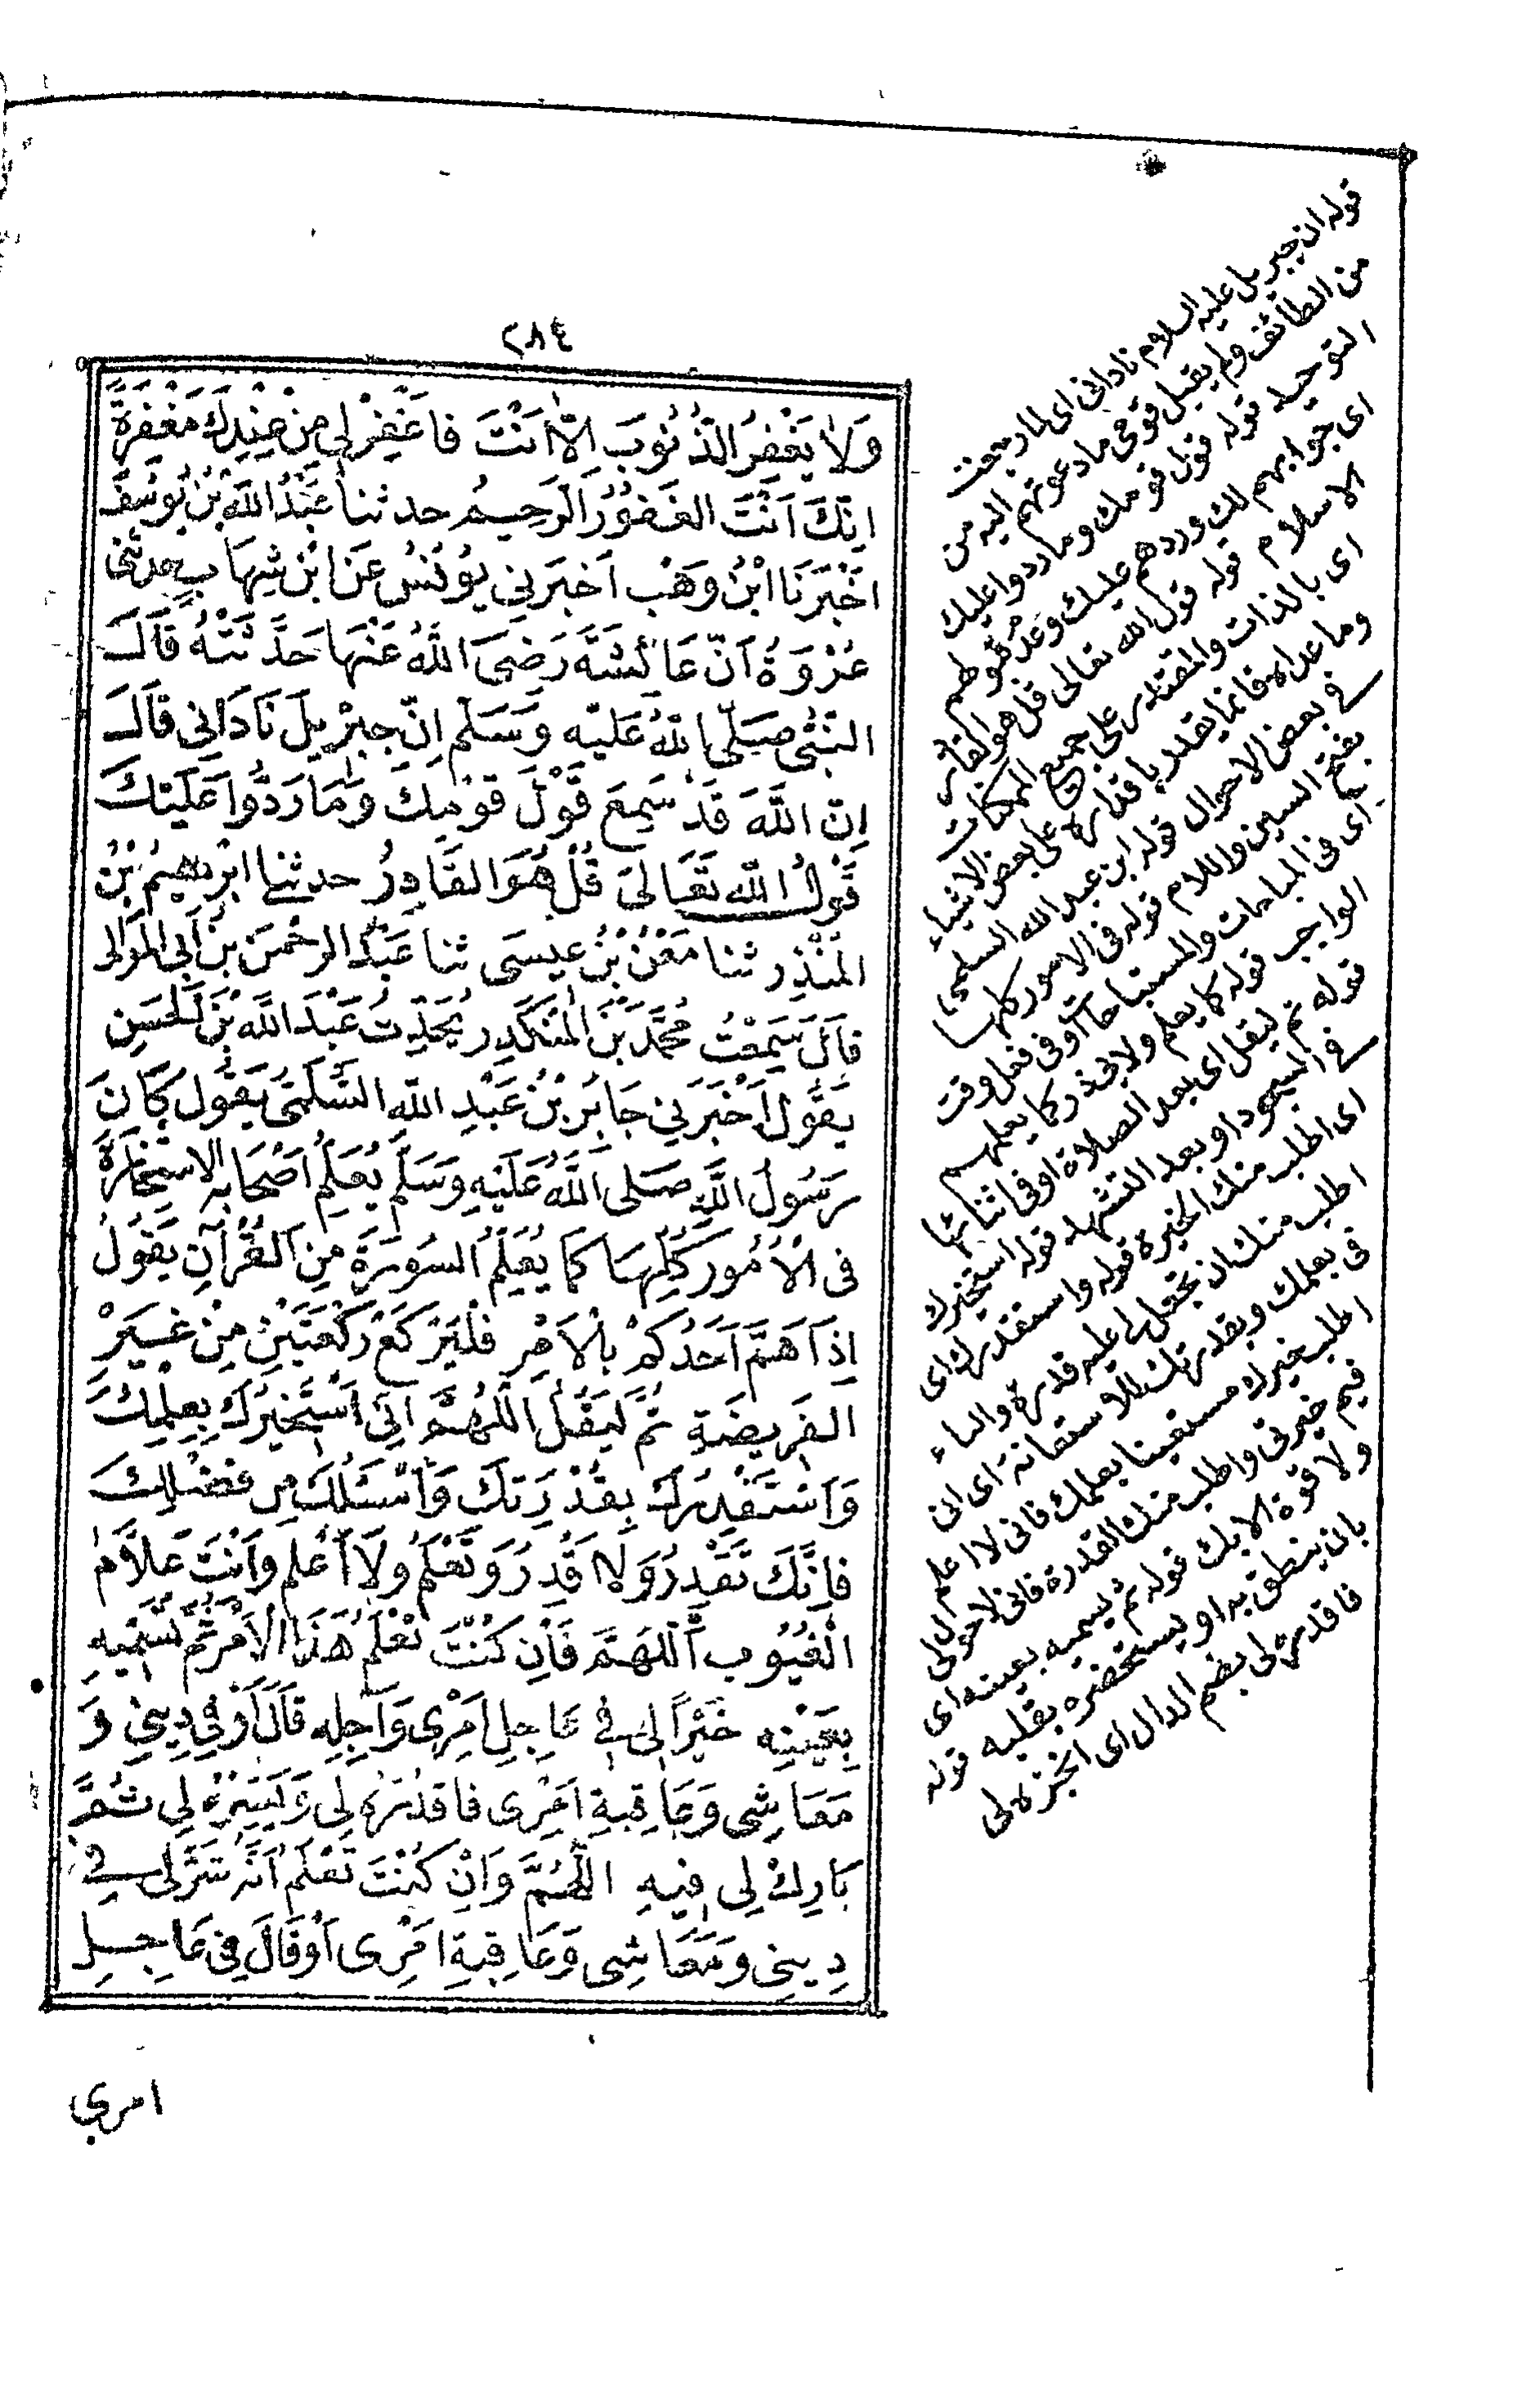 ٢٨٤
وَلَا يَغْفِرُ الذُّنُوبَ اِلَّا اَنْتَ فَاغْفِرْ لِي مِنْ عِنْدِكَ مَغْفِرَةً
اِنَّكَ اَنْتَ الغَفُوُرُ الرَحِيمُ حدثنا عَبْدُ اللهِ بْنُ يُوسُفَ
اَخْبَرَنَا ابْنُ وَهْب اَخْبَرَنِي يُونُسُ عَنَ ابْنِ شِهَابٍ حدثنى
عُرْوَةُ اَنّ عَائشَةَ رَضِىَ اللهُ عَنْهَا حَدَّثَتْهُ قَالَ
النَبّىُ صَلّى اللهُ عَلَيْه وَسَلّم اِنّ جِبْرِيلَ نَادَانِي قَالَ
اِنّ اللَّهَ قَدْ سَمِعَ قَوْلَ قَوْمِكَ وَمَا رَدُّوا عَلَيْكَ
قَوْلُ اللّهِ تَعَالىَ قُلْ هُوَ القَادِرُ حدثنا ابْرهيمُ بْنُ
المُنْذِرِ ثنا مَعْنُ بْنُ عِيسَى ثنا عَبْدُ الرحْمن بْنُ اَبِى المَوَالى
قالَ سَمِعْتُ مُحَمَّدَ بْنَ المُنْكَدِرِ يُحَدِّثُ عَبْدَ اللَّهِ بْنَ الحَسَنِ
يَقُولُ اَخْبَرَنِي جَابِرُ بْنُ عَبْدِ اللهِ السَّلَمِىُّ يَقُول كَانَ
رَسُولُ اللَّهِ صَلى اللَّهُ عَلَيْهِ وَسَلَّم يُعَلِّمُ اَصْحَابَهُ الاسْتِخَارَةَ
فى الْاُمُورِ كُلِّهَا كَمَا يُعَلِّمُ السُورَةَ مِنَ القُرْآنِ يَقُولُ
اِذَا هَمَّ اَحَدُكُمْ بِالْاَمْرِ فَلْيَرْكَعْ رَكْعَتَيْنِ مِنْ غَيْرِ
الفَرِيضَةِ ثُمَّ لِيَقُلْ اللّهُمَّ اِنّى اَسْتَخِيرُكَ بِعِلْمِكَ
وَاَسْتَقْدِرُكَ بِقُدْرَتِكَ وَاَسْئَلُكَ مِن فَضْلِكَ
فَاِنَّكَ تَقْدِرُ وَلَا اَقْدِرُ وَتَعْلَمُ وَلَا اَعْلم وَاَنْتَ عَلَّامُ
الْغُيُوبِ اَللهُمَّ فَاِن كُنْتَ تَعْلَمُ هَذَا الْاَمْرَ ثُم تُسَمِّيهِ
بِعَيْنِه خَيْراً لى فِى عَاجِلِ اَمْرِى وَآجِلِه قَالَ اَوْ فِى دِينِي وَ
مَعَاشِى وَعَاقِبةِ اَمْرِى فَاقْدُرْهُ لِى وَيَسِّرْهُ لِي ثُمَّ
بَارِكْ لِى فِيهِ اللّهُمَّ وَاِنْ كُنْتَ تَعْلَم اَنَّهُ شَرٌّ لِى فِى
دِينِى وَمَعَاشِى وَعَاقِبةِ اَمْرِى اَوْ قَالَ فِى عَاجِلِ
امري
قوله ان جبريل عليه السلام نادانى اى لما رجعت
من الطائف ولم يقبل قومى ما دعوتهم اليه من
التوحيد قوله قول قومك وما ردوا عليك
اى جوابهم لك وردهم عليك وعدم قبولهم
الاسلام قوله قول الله تعالى قل هو القادر
اى بالذات والمقتدر على جميع الممكنات
وما عداه فانما يقدر باقداره على بعض الاشياء
فى بعض الاحوال قوله ابن عبد الله السلمى
بفتح السين واللام قوله فى الامور كلها
اى فى المباحات والمستحبات او فى فعل وقت
الواجب قوله كما يعلم ولابى ذر كما يعلمهم
قوله ثم ليقل اى بعد الصلاة او فى اثنائها
فى السجود او بعد التشهد قوله استخيرك
اى اطلب منك الخيرة قوله واستقدرك اى
اطلب منك ان تجعل لى عليه قدرة والباء
فى بعلمك وبقدرتك للاستعانة اى انى
اطلب خيرك مستعينا بعلمك فانى لا اعلم
فيم خيرتى واطلب منك القدرة فانى لا حول لى
ولا قوة الا بك قوله ثم يسميه بعينه اى
بان ينطق به او يستحضره بقلبه قوله
فاقدره لى بضم الدال اى انجزه لى